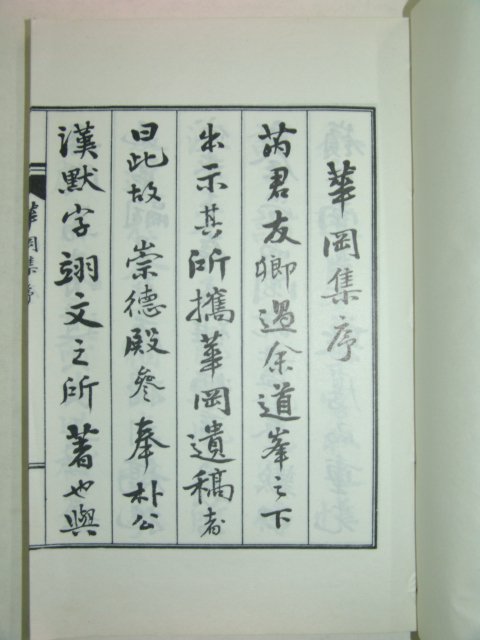 華岡集序
芮君友卿過余道峯之下
出示其所攜華岡遺稿者
曰此故崇德殿參奉朴公
漢默字翊文之所著也與
華岡集序